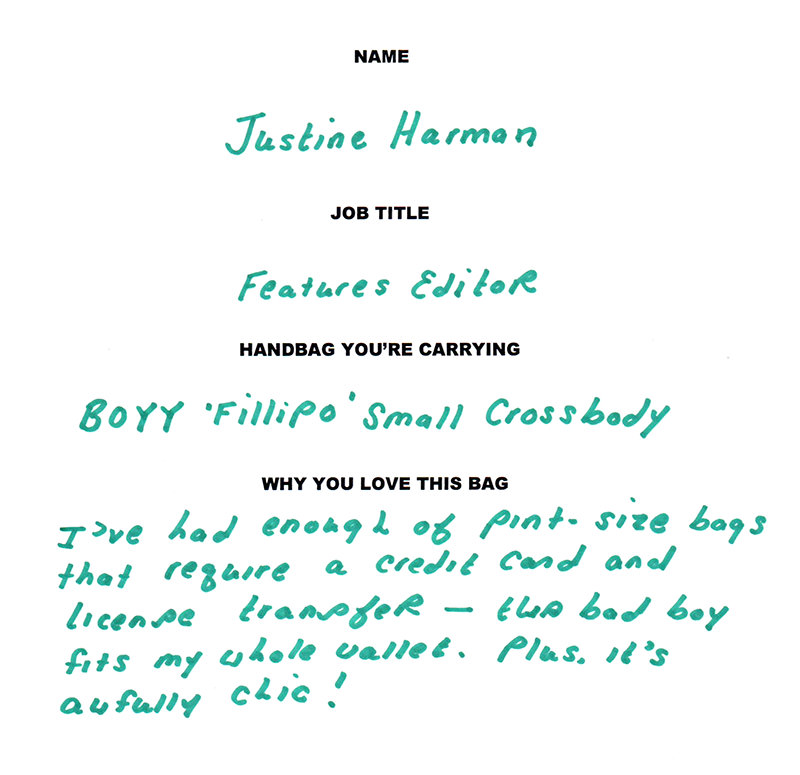 NAME
Justine Harman
JOB TITLE
Features Editor
HANDBAG YOU'RE CARRYING
BOYY 'Fillipo' Small Crossbody
WHY YOU LOVE THIS BAG
I've had enough of pint-size bags
that require a credit card and
license transfer — this bad boy
fits my whole wallet. Plus, it's
awfully chic!